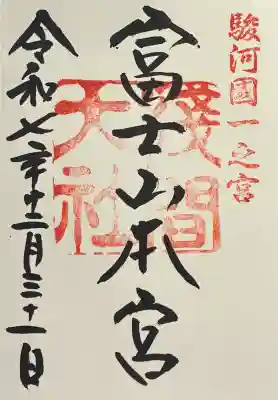 駿河國一之宮
富士山本宮
淺間天社
令和七年十二月三十一日